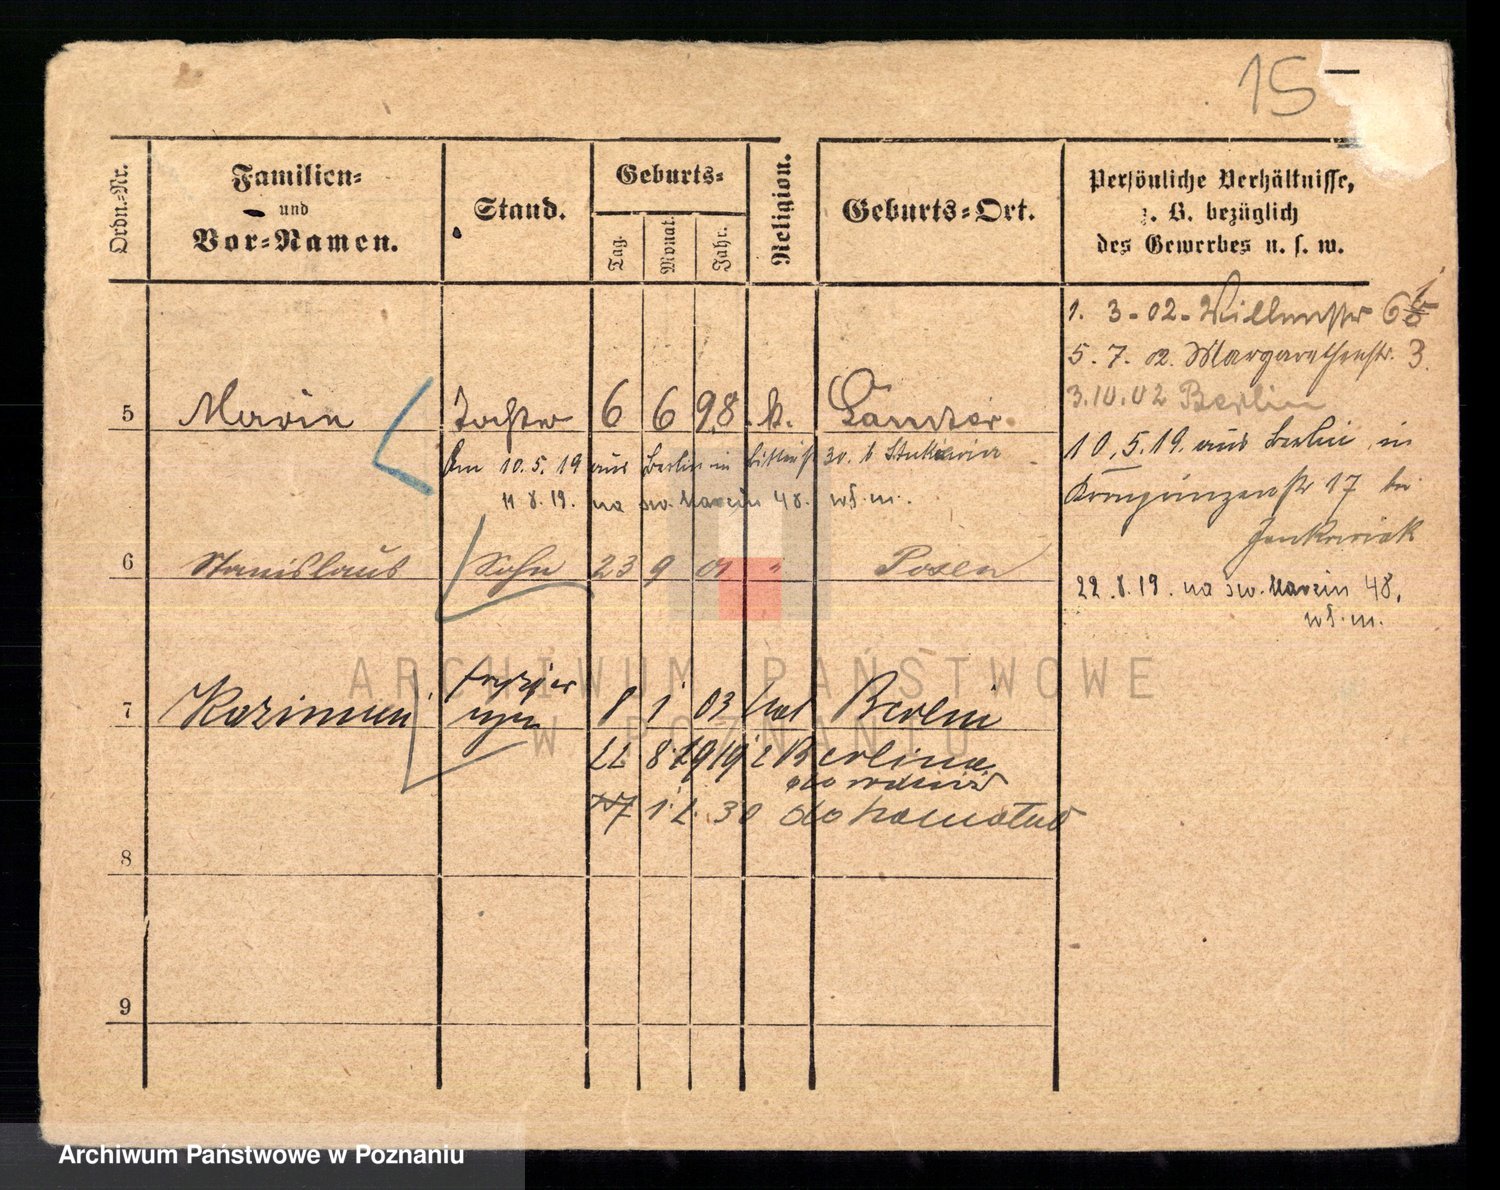 15
Ordn.-Nr.
Familien-
und
Vor-Namen.
Stand.
Geburts-
Tag.
Monat.
Jahr.
Religion.
Geburts-Ort.
Persönliche Verhältnisse,
z. B. bezüglich
des Gewerbes u. s. w.
1. 3 - 02 - 6
5. 7. 02. Margarethenstr. 3.
3.10.02 Berlin
10.5.19. aus Berlin in
Kronprinzenstr 17 bei
Jankowiak
22.8.19. na św. Marcin 48,
5 Tochter 6 6 98 k.
Am 10.5.19 aus Berlin in
11 8.19. na św. Marcin 48.
6 Stanislaus Sohn 23 9 01 " Posen
7 syn 8 1 03 kat Berlin
22 8 1919 z Berlina
1. 2. 30 do
8
9
ARCHIWUM PAŃSTWOWE
W POZNANIU
Archiwum Państwowe w Poznaniu